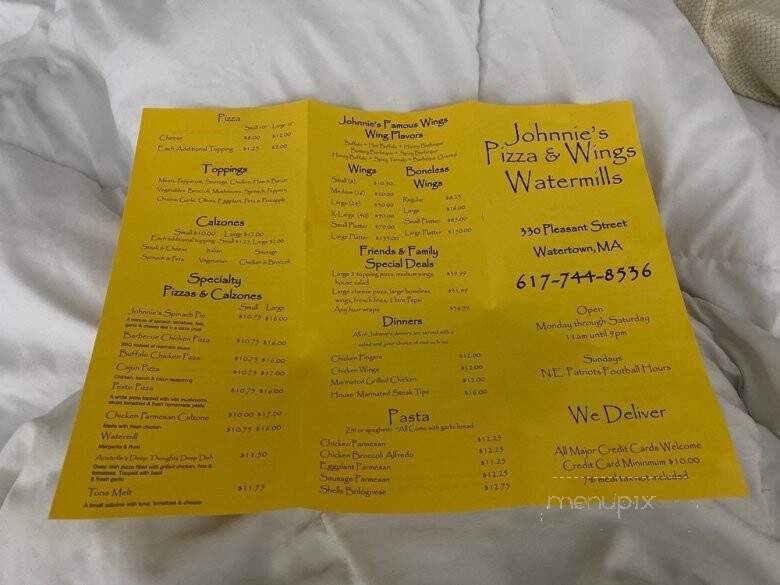 Pizza
Small 10" Large 16"
Cheese $8.00 $12.00
Each Additional Topping $1.25 $2.00
Toppings
Meats: Pepperoni, Sausage, Chicken, Ham & Bacon
Vegetables: Broccoli, Mushrooms, Spinach, Peppers,
Onions, Garlic, Olives, Eggplant, Feta & Pineapple
Calzones
Small $10.00 Large $17.00
Each additional topping Small $1.25 Large $2.00
Steak & Cheese Italian Sausage
Spinach & Feta Vegetarian Chicken & Broccoli
Specialty
Pizzas & Calzones
Small Large
Johnnie's Spinach Pie $10.75 $16.00
A mixture of spinach, tomatoes, feta,
garlic & cheese laid in a pizza crust
Barbecue Chicken Pizza $10.75 $16.00
BBQ instead of marinara sauce
Buffalo Chicken Pizza $10.75 $16.00
Cajun Pizza $10.75 $17.00
Chicken, bacon & cajun seasoning
Pesto Pizza $10.75 $16.00
A white pizza topped with wild mushrooms,
sliced tomatoes & fresh homemade pesto
Chicken Parmesan Calzone $10.00 $17.00
Made with fresh chicken
Watermill $10.75 $16.00
Margarita & Rum
Aristotle's Deep Thoughts Deep Dish $11.50
Deep dish pizza filled with grilled chicken, feta &
tomatoes. Topped with basil
& fresh garlic
Tuna Melt $11.75
A small calzone with tuna, tomatoes & cheese
Johnnie's Famous Wings
Wing Flavors
Buffalo • Hot Buffalo • Honey Barbeque
Barbeque • Spicy Barbeque
Honey Buffalo • Spicy Teriyaki • Barbeque Oriental
Wings
Small (8) $10.50
Medium (16) $20.00
Large (24) $30.00
X-Large (40) $50.00
Small Platter $70.00
Large Platter $135.00
Boneless
Wings
Regular $8.25
Large $16.00
Small Platter $85.00
Large Platter $150.00
Friends & Family
Special Deals
Large 2 topping pizza, medium wings, $39.99
house salad
Large cheese pizza, large boneless $31.99
wings, french fries, 2 litre Pepsi
Any four wraps $34.99
Dinners
All of Johnnie's dinners are served with a
salad and your choice of rice or fries
Chicken Fingers $12.00
Chicken Wings $12.00
Marinated Grilled Chicken $12.00
House Marinated Steak Tips $16.00
Pasta
Ziti or spaghetti *All Come with garlic bread
Chicken Parmesan $12.25
Chicken Broccoli Alfredo $12.25
Eggplant Parmesan $11.25
Sausage Parmesan $12.25
Shells Bolognese $12.75
Johnnie's
Pizza & Wings
Watermills
330 Pleasant Street
Watertown, MA
617-744-8536
Open
Monday through Saturday
11am until 9pm
Sundays
N.E. Patriots Football Hours
We Deliver
All Major Credit Cards Welcome
Credit Card Minimum $10.00
7% meal tax not included
menupix